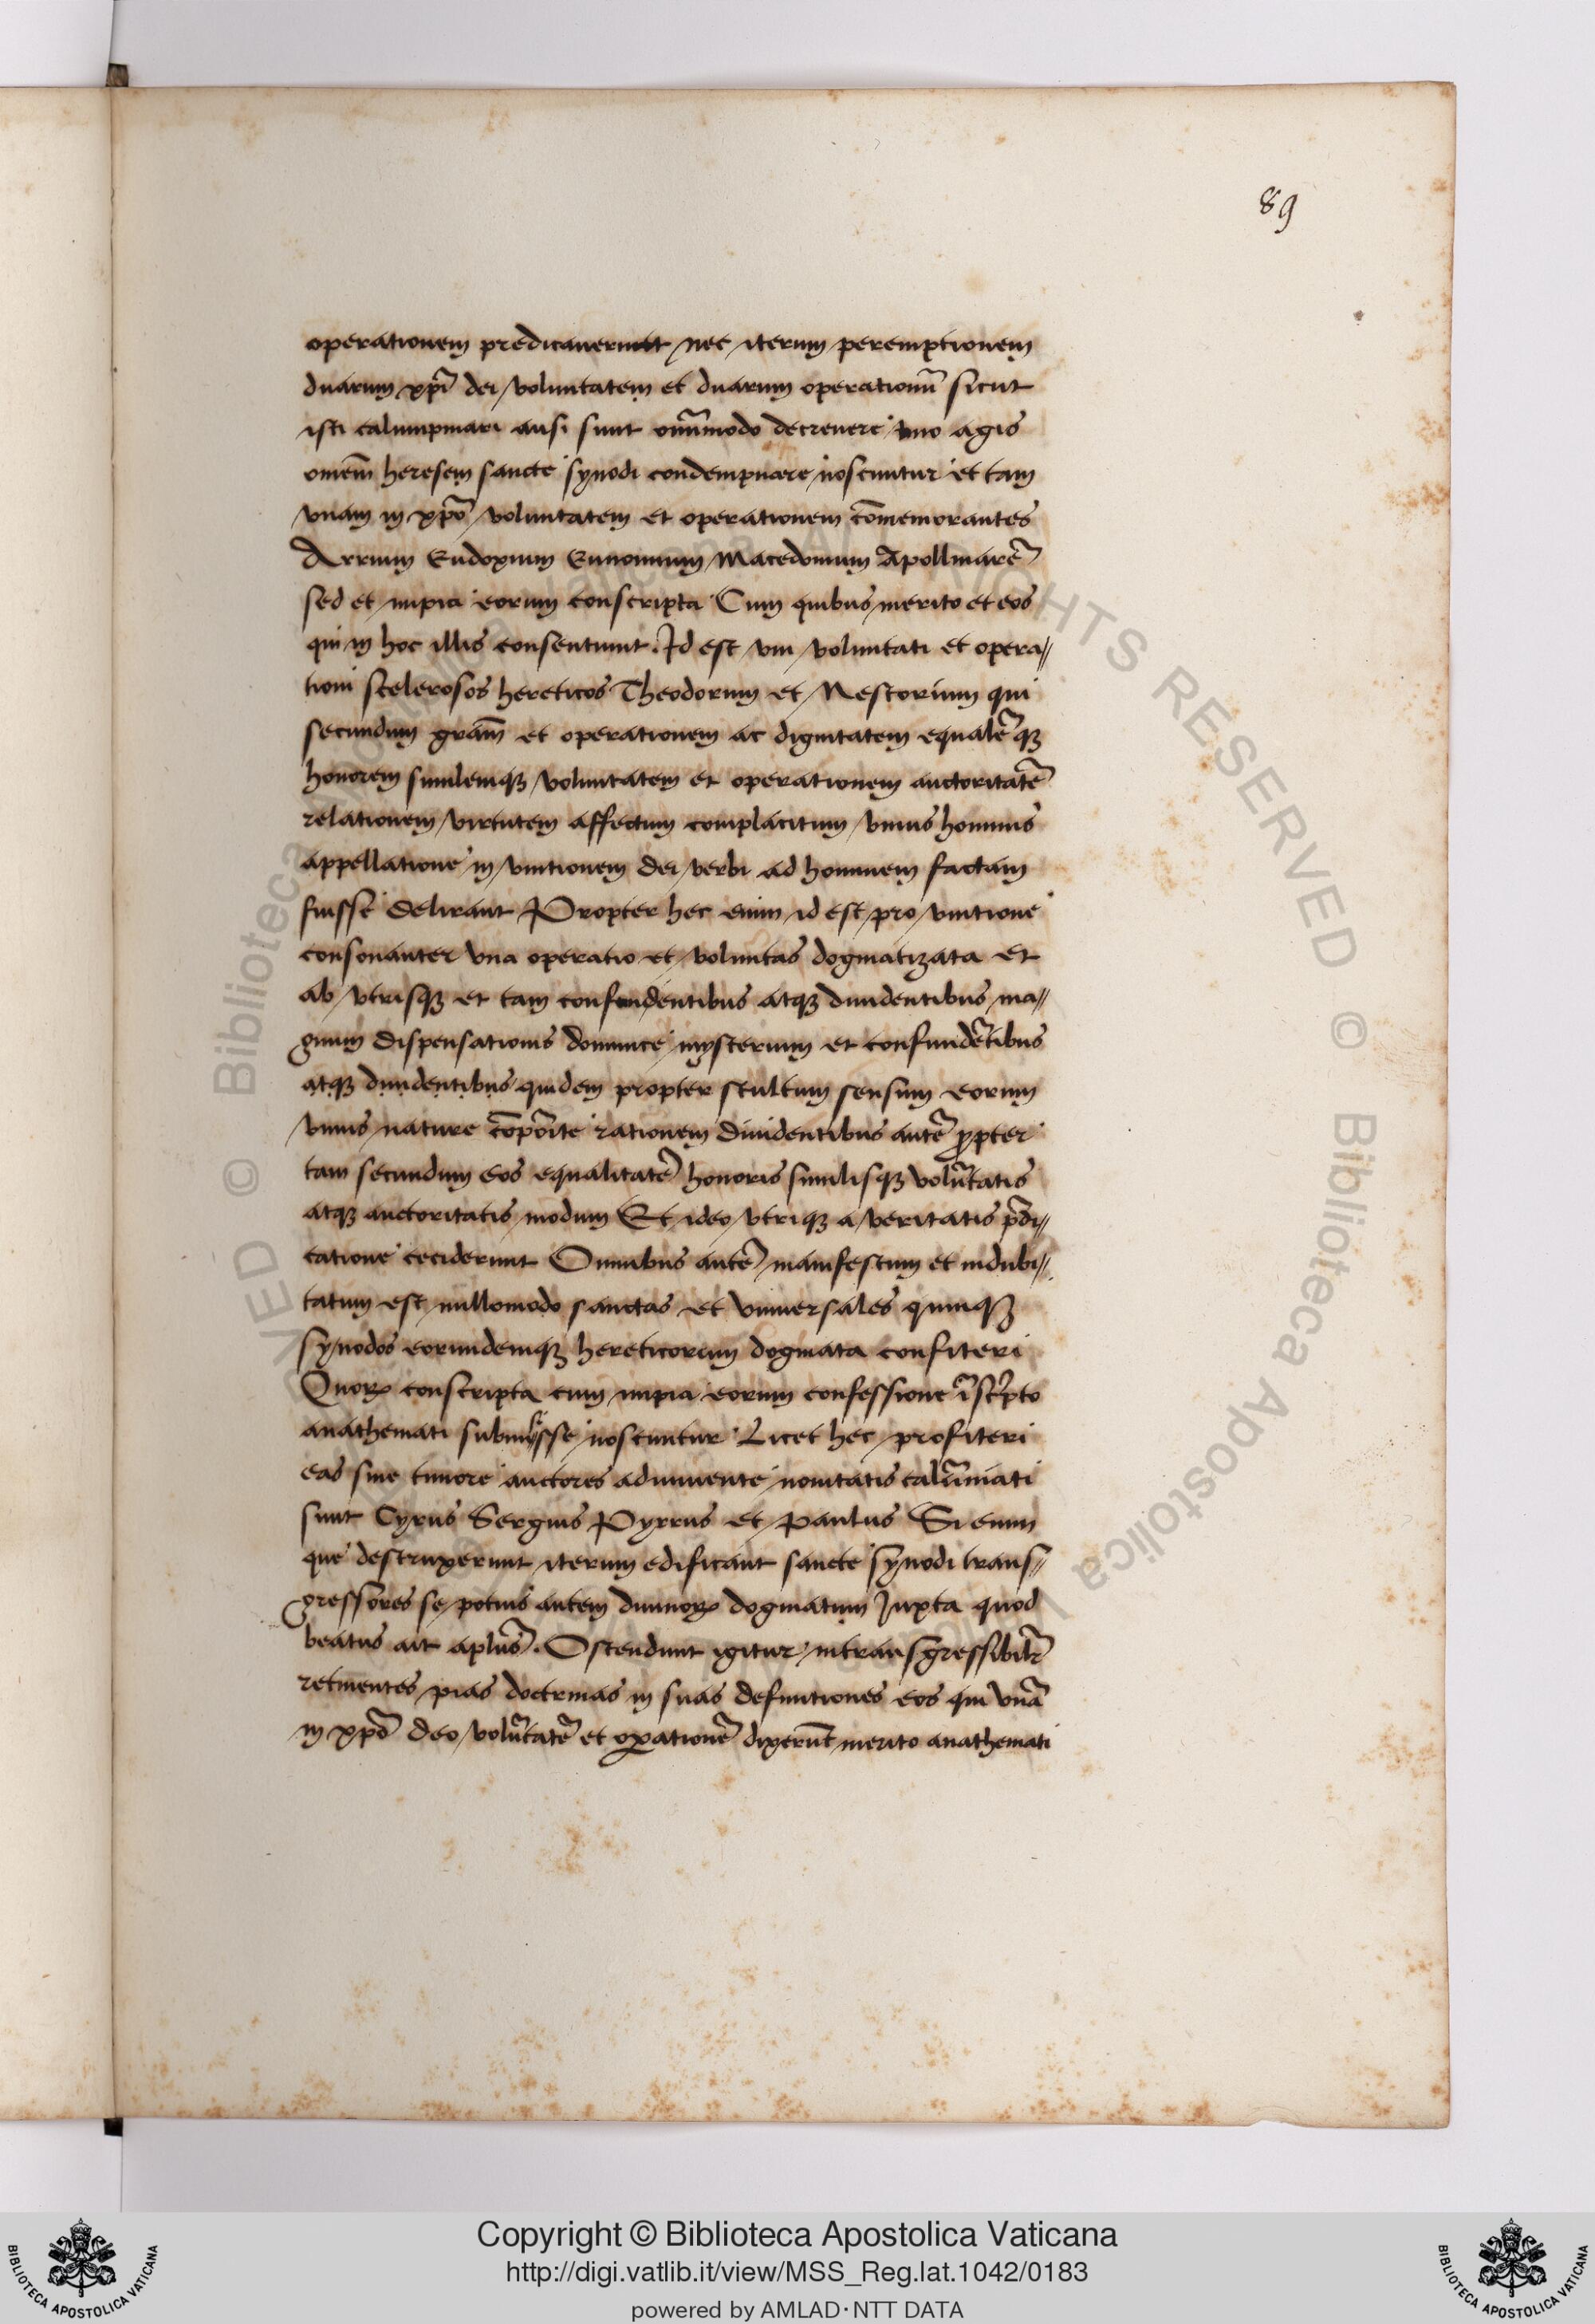 89
operationem predicauerunt nec iterum peremptionem
duarum xpī dei voluntatem et duarum operationū sicut
isti calumpniari ausi sunt om̄imodo decreuere imo agis
omēm heresem sancte synodi condempnare noscuntur et tam
vnam in xpō voluntatem et operationem cōmemorantes
Arrium Eudoxium Eunomium Macedonium Apollinarē
sed et impia eorum conscripta Cum quibus merito et eos
qui in hoc illis consentiunt. Id est vni voluntati et opera//
tioni scelerosos hereticos Theodorum et Nestorium qui
secundum grām et operationem ac dignitatem equalēqꝫ
honorem similemqꝫ voluntatem et operationem auctoritatē
relationem virtutem affectum complacitum vnius hominis
appellatione in vnitionem dei verbi ad hominem factam
fuisse delirant Propter hec enim id est pro vnitione
consonanter vna operatio et voluntas dogmatizata et
ab vtrisqꝫ et tam confundentibus atqꝫ diuidentibus ma//
gnum dispensationis dominice mysterium et confundētibus
atqꝫ diuidentibus quidem propter stultum sensum eorum
vnius nature cōpōite rationem diuidentibus autē ꝓpter
tam secundum eos equalitatē honoris similisqꝫ volūtatis
atqꝫ auctoritatis modum Et ideo vtriqꝫ a veritatis p̄di//
catione ceciderunt Omnibus autē manifestum et indubi//
tatum est nullomodo sanctas et vniuersales quinqꝫ
synodos eorundemqꝫ hereticorum dogmata confiteri
Quoꝝ conscripta cum impia eorum confessione ī sc̄pto
anathemati submisisse noscuntur Licet hec profiteri
eas sine timore auctores adinuente nouitatis calūniati
sunt Cyrus Sergius Pyrrus et Paulus Si enim
que destruxerunt iterum edificant sancte synodi trans//
gressores se potius autem diuinoꝝ dogmatum Juxta quod
beatus ait aplūs. Ostendunt igitur intransgressibilr̄
retinentes pias doctrinas in suas definitiones eos qui vnā
in xpō deo volūtatē et oꝑationē dixerūt merito anathemati
Copyright © Biblioteca Apostolica Vaticana
http://digi.vatlib.it/view/MSS_Reg.lat.1042/0183
powered by AMLAD·NTT DATA